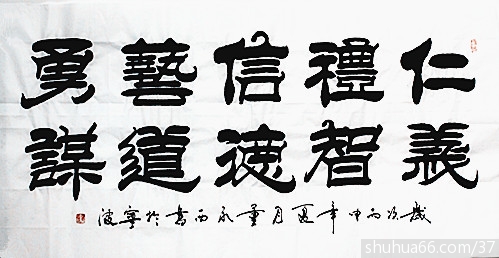 仁義
禮智
信德
藝道
勇謀
歲次丙申年夏月 書於寧波
shuhua66.com/37